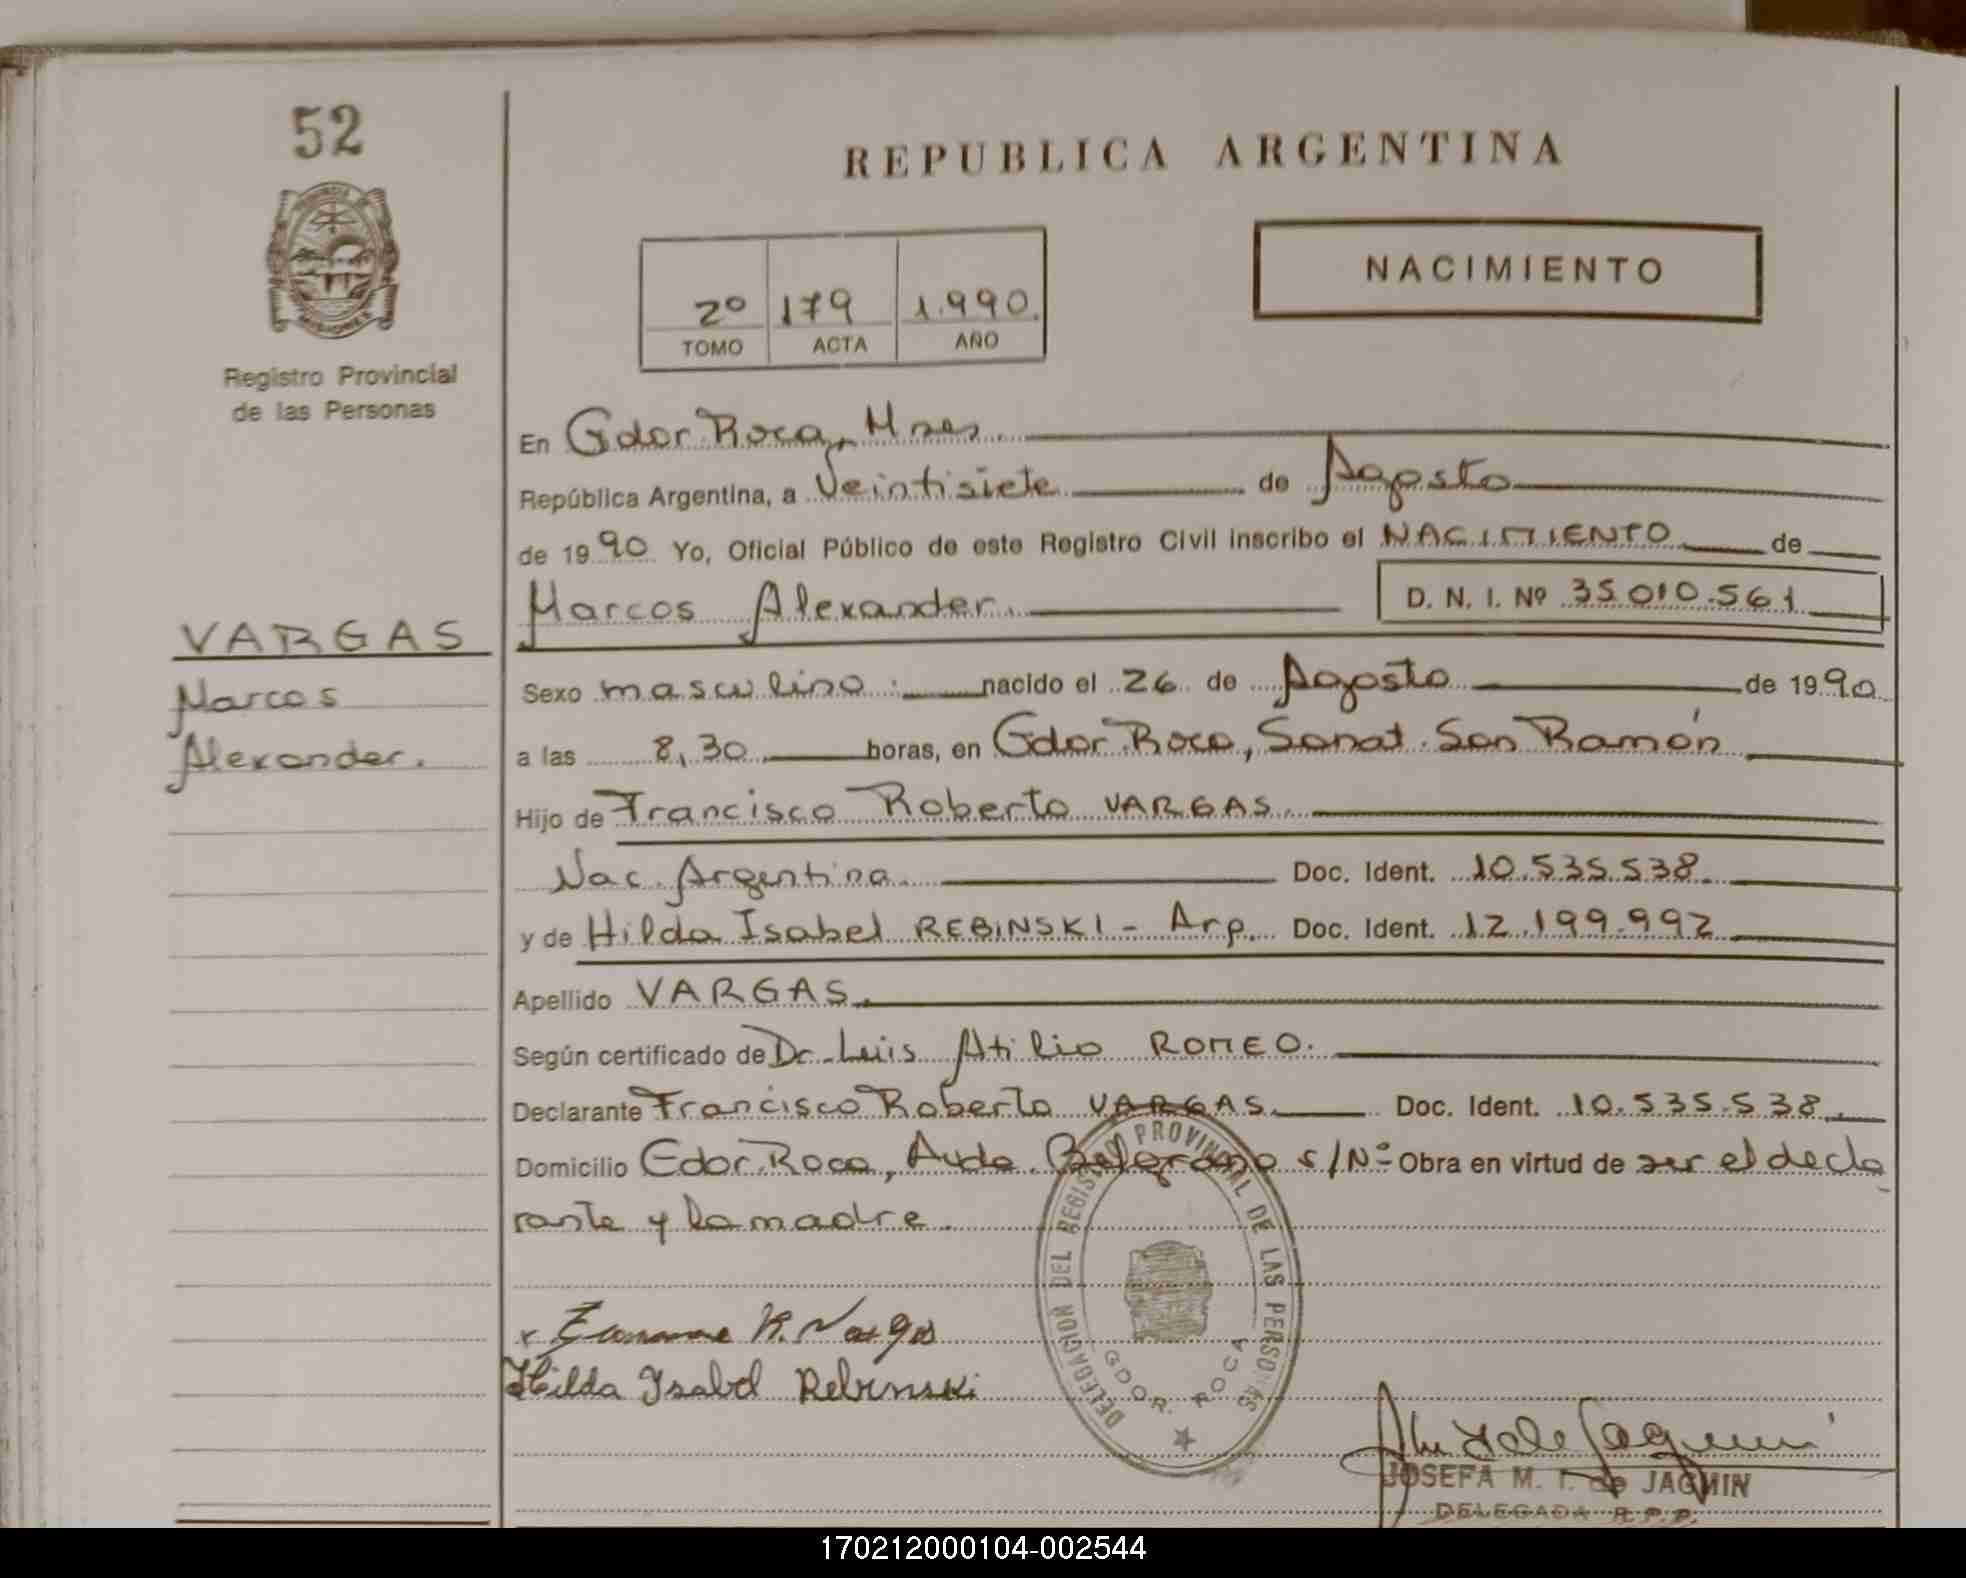 52
REPUBLICA ARGENTINA
NACIMIENTO
2º 179 1.990.
TOMO ACTA AÑO
MISIONES
Registro Provincial
de las Personas
En Gdor. Roca, Mnes.
República Argentina, a Veintisiete de Agosto
de 1990 Yo, Oficial Público de este Registro Civil inscribo el NACIMIENTO de
Marcos Alexander. D. N. I. Nº 35.010.561
VARGAS
Marcos
Alexander.
Sexo masculino. nacido el 26 de Agosto de 1990
a las 8,30 horas, en Gdor. Roca, Sanat. San Ramón
Hijo de Francisco Roberto VARGAS.
Nac. Argentina. Doc. Ident. 10.535.538.
y de Hilda Isabel REBINSKI - Arg. Doc. Ident. 12.199.992
Apellido VARGAS.
Según certificado de Dr. Luis Atilio ROMEO.
Declarante Francisco Roberto VARGAS. Doc. Ident. 10.535.538.
Domicilio Gdor. Roca, Avda. Belgrano s/Nº Obra en virtud de ser el decla
rante y la madre.
DELEGACION DEL REGISTRO PROVINCIAL DE LAS PERSONAS
GDOR. ROCA
x R. Vargas
Hilda Isabel Rebinski
JOSEFA M. I. de JAGMIN
DELEGADA R.P.P.
170212000104-002544